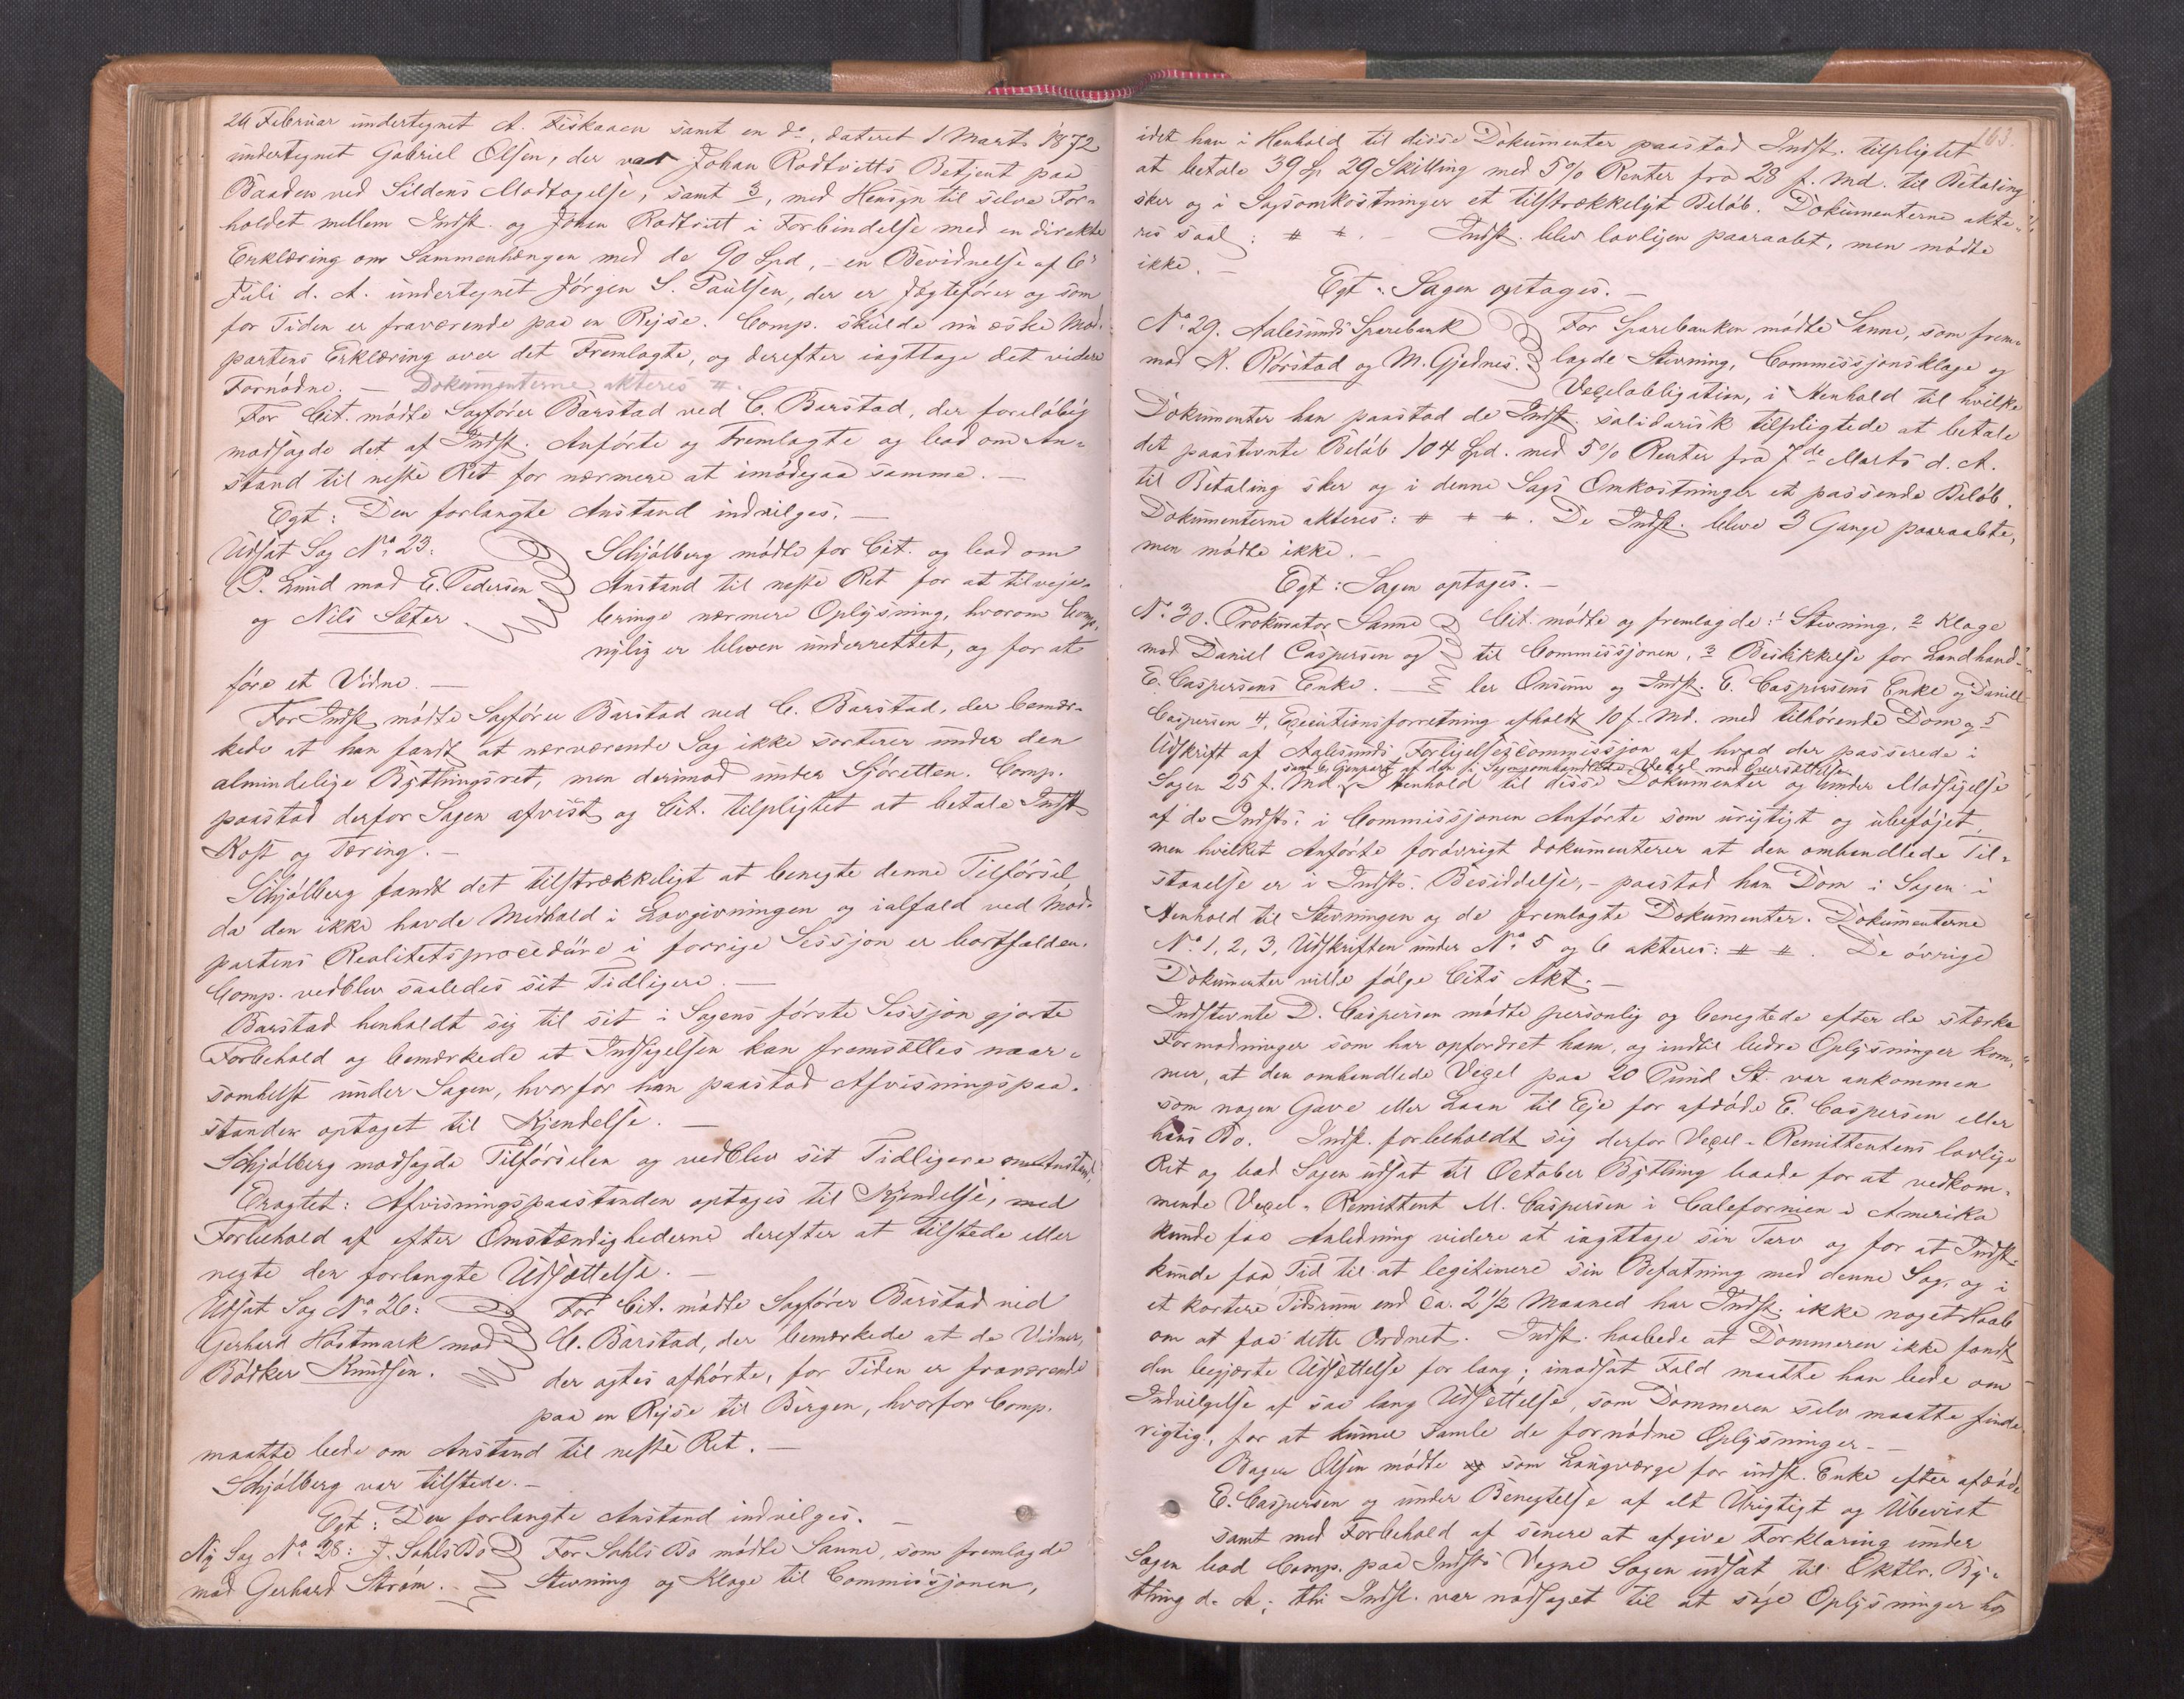 24 Februar undertegnet A. Fiskaaen samt en do, dateret 1 Marts 1872
undertegnet Gabriel Olsen, der var Johan Rodtvitts Betjent paa
Baaden ved Sildens Modtagelse, samt 3, med Hensyn til selve For-
holdet mellem Indst. og Johan Rodtvitt i Forbindelse med en direkte
Erklæring om Sammenhængen med de 90 Spd, - en Bevidnelse af 6'
Juli d. A. undertegnet Jørgen S. Paulsen, der er Jægtefører og som
for Tiden er fraværende paa en Rejse. Comp. skulde nu æske Mod-
partens Erklæring over det Fremlagte, og derefter iagttage det videre
Fornødne. - Dokumenterne akteres #.
For Cit. mødte Sagfører Barstad ved C. Barstad, der foreløbig
modsagde det af Indst. Anførte og Fremlagte og bad om An-
stand til neste Ret for nærmere at imødegaa samme. -
Egt: Den forlangte Anstand indvilges. -
Udsat Sag No 23: Schjølberg mødte for Cit. og bad om
P. Lund mod E. Pedersen Anstand til neste Ret for at tilveje-
og Nils Sæter bringe nærmere Oplysning, hvorom Comp.
nylig er bleven underrettet, og for at
føre et Vidne. -
For Indst. mødte Sagfører Barstad ved C. Barstad, der bemær-
kede at han fandt at nærværende Sag ikke sorterer under den
almindelige Bythingsret, men derimod under Sjøretten. Comp.
paastod derfor Sagen afvist og Cit. tilpligtet at betale Indst
Kost og Tæring. -
Schjølberg fandt det tilstrækkeligt at benegte denne Tilførsel,
da den ikke havde Medhold i Lovgivningen og ialfald ved Mod-
partens Realitetsprocedüre i forrige Session er bortfalden.
Comp. vedblev saaledes sit Tidligere. -
Barstad henholdt sig til sit i Sagens første Sessjon gjorte
Forbehold og bemærkede at Indsigelsen kan fremsættes naar-
somhelst under Sagen, hvorfor han paastod Afvisningspaa-
standen optaget til Kjendelse. -
Schjølberg modsagde Tilførselen og vedblev sit Tidligere om Anstand.
Eragtet: Afvisningspaastanden optages til Kjendelse, med
Forbehold af efter Omstændighederne derefter at tilstede eller
negte den forlangte Udsættelse. -
Udsat Sag No 26: For Cit. mødte Sagfører Barstad ved
Gerhard Høstmark mod C. Barstad, der bemærkede at de Vidner,
Bødker Knudsen. der agtes afhørte, for Tiden er fraværende
paa en Rejse til Bergen, hvorfor Comp.
maatte bede om Anstand til neste Ret. -
Schjølberg var tilstede. -
Egt: Den forlangte Anstand indvilges. -
Ny Sag No 28: J. Sahls Bo For Sahls Bo mødte Sanne, som fremlagde
mod Gerhard Strøm. Stevning og Klage til Commissjonen,
163.
idet han i Henhold til disse Dokumenter paastod Indst. tilpligtet
at betale 39 Sp 29 Skilling med 5% Renter fra 28 f. Md. til Betaling
sker og i Sagsomkostninger et tilstrækkeligt Beløb. Dokumenterne akte-
res saal: # #. - Indst. blev lovligen paaraabt, men mødte
ikke. -
Egt: Sagen optages. -
No 29. Aalesunds Sparebank For Sparebanken mødte Sanne, som frem-
mod N. Rørstad og M. Gjednes. lagde Stevning, Commissjonsklage og
Vexelobligation, i Henhold til hvilke
Dokumenter han paastod de Indst. solidarisk tilpligtede at betale
det paastevnte Beløb 104 Spd. med 5% Renter fra 7de Marts d. A.
til Betaling sker og i denne Sags Omkostninger et passende Beløb.
Dokumenterne akteres: # # #. De Indst. bleve 3 Gange paaraabte,
men mødte ikke. -
Egt: Sagen optages. -
No 30. Prokurator Sanne Cit. mødte og fremlagde: 1 Stevning, 2 Klage
mod Daniel Caspersen og til Commissjonen, 3 Beskikkelse for Landhand-
E. Caspersens Enke. - ler Onsum og Indst. E. Caspersens Enke og Daniel
Caspersen 4, Executionsforretning afholdt 10 f. Md. med tilhørende Dom og 5
Udskrift af Aalesunds Forligelsescommissjon af hvad der passerede i
samt 6 Genpart af den i Sagen omhandlede Vexel med Oversættelse.
Sagen 25 f. Md. I Henhold til disse Dokumenter og under Modsigelse
af de Indsts. i Commissjonen Anførte som urigtigt og ubeføjet,
men hvilket Anførte forøvrigt dokumenterer at den omhandlede Til-
staaelse er i Indsts. Besiddelse, - paastod han Dom i Sagen i
Henhold til Stevningen og de fremlagte Dokumenter. Dokumenterne
No 1, 2, 3, Udskriften under No 5 og 6 akteres: # #. De øvrige
Dokumenter ville følge Cits Akt. -
Indstevnte D. Caspersen mødte personlig og benegtede efter de stærke
Formodninger som har opfordret ham, og indtil bedre Oplysninger kom-
mer, at den omhandlede Vexel paa 20 Pund St. var ankommen
som nogen Gave eller Laan til Eje for afdøde E. Caspersen eller
hans Bo. Indst. forbeholdt sig derfor Vexel-Remittentens lovlige
Ret og bad Sagen udsat til October Bything baade for at vedkom-
mende Vexel-Remittent M. Caspersen i Californien i Amerika
kunde faa Anledning videre at iagttage sin Tarv og for at Indst.
kunde faa Tid til at legitimere sin Befatning med denne Sag, og i
et kortere Tidsrum end ca. 2 1/2 Maaned har Indst. ikke noget Haab
om at faa dette Ordnet. Indst. haabede at Dommeren ikke fandt
den begjærte Udsættelse for lang; imodsat Fald maatte han bede om
Indvilgelse af saa lang Udsettelse, som Dommeren selv maatte finde
rigtig, for at kunne samle de fornødne Oplysninger. -
Bager Olsen mødte som Laugværge for indst. Enke efter afdøde
E. Caspersen og under Benegtelse af alt Urigtigt og Ubevist
samt med Forbehold af senere at afgive Forklaring under
Sagen bad Comp. paa Indsts Vegne Sagen udsat til Oktbr. By-
thing d. A; thi Indst. var nødsaget til at søge Oplysninger hos